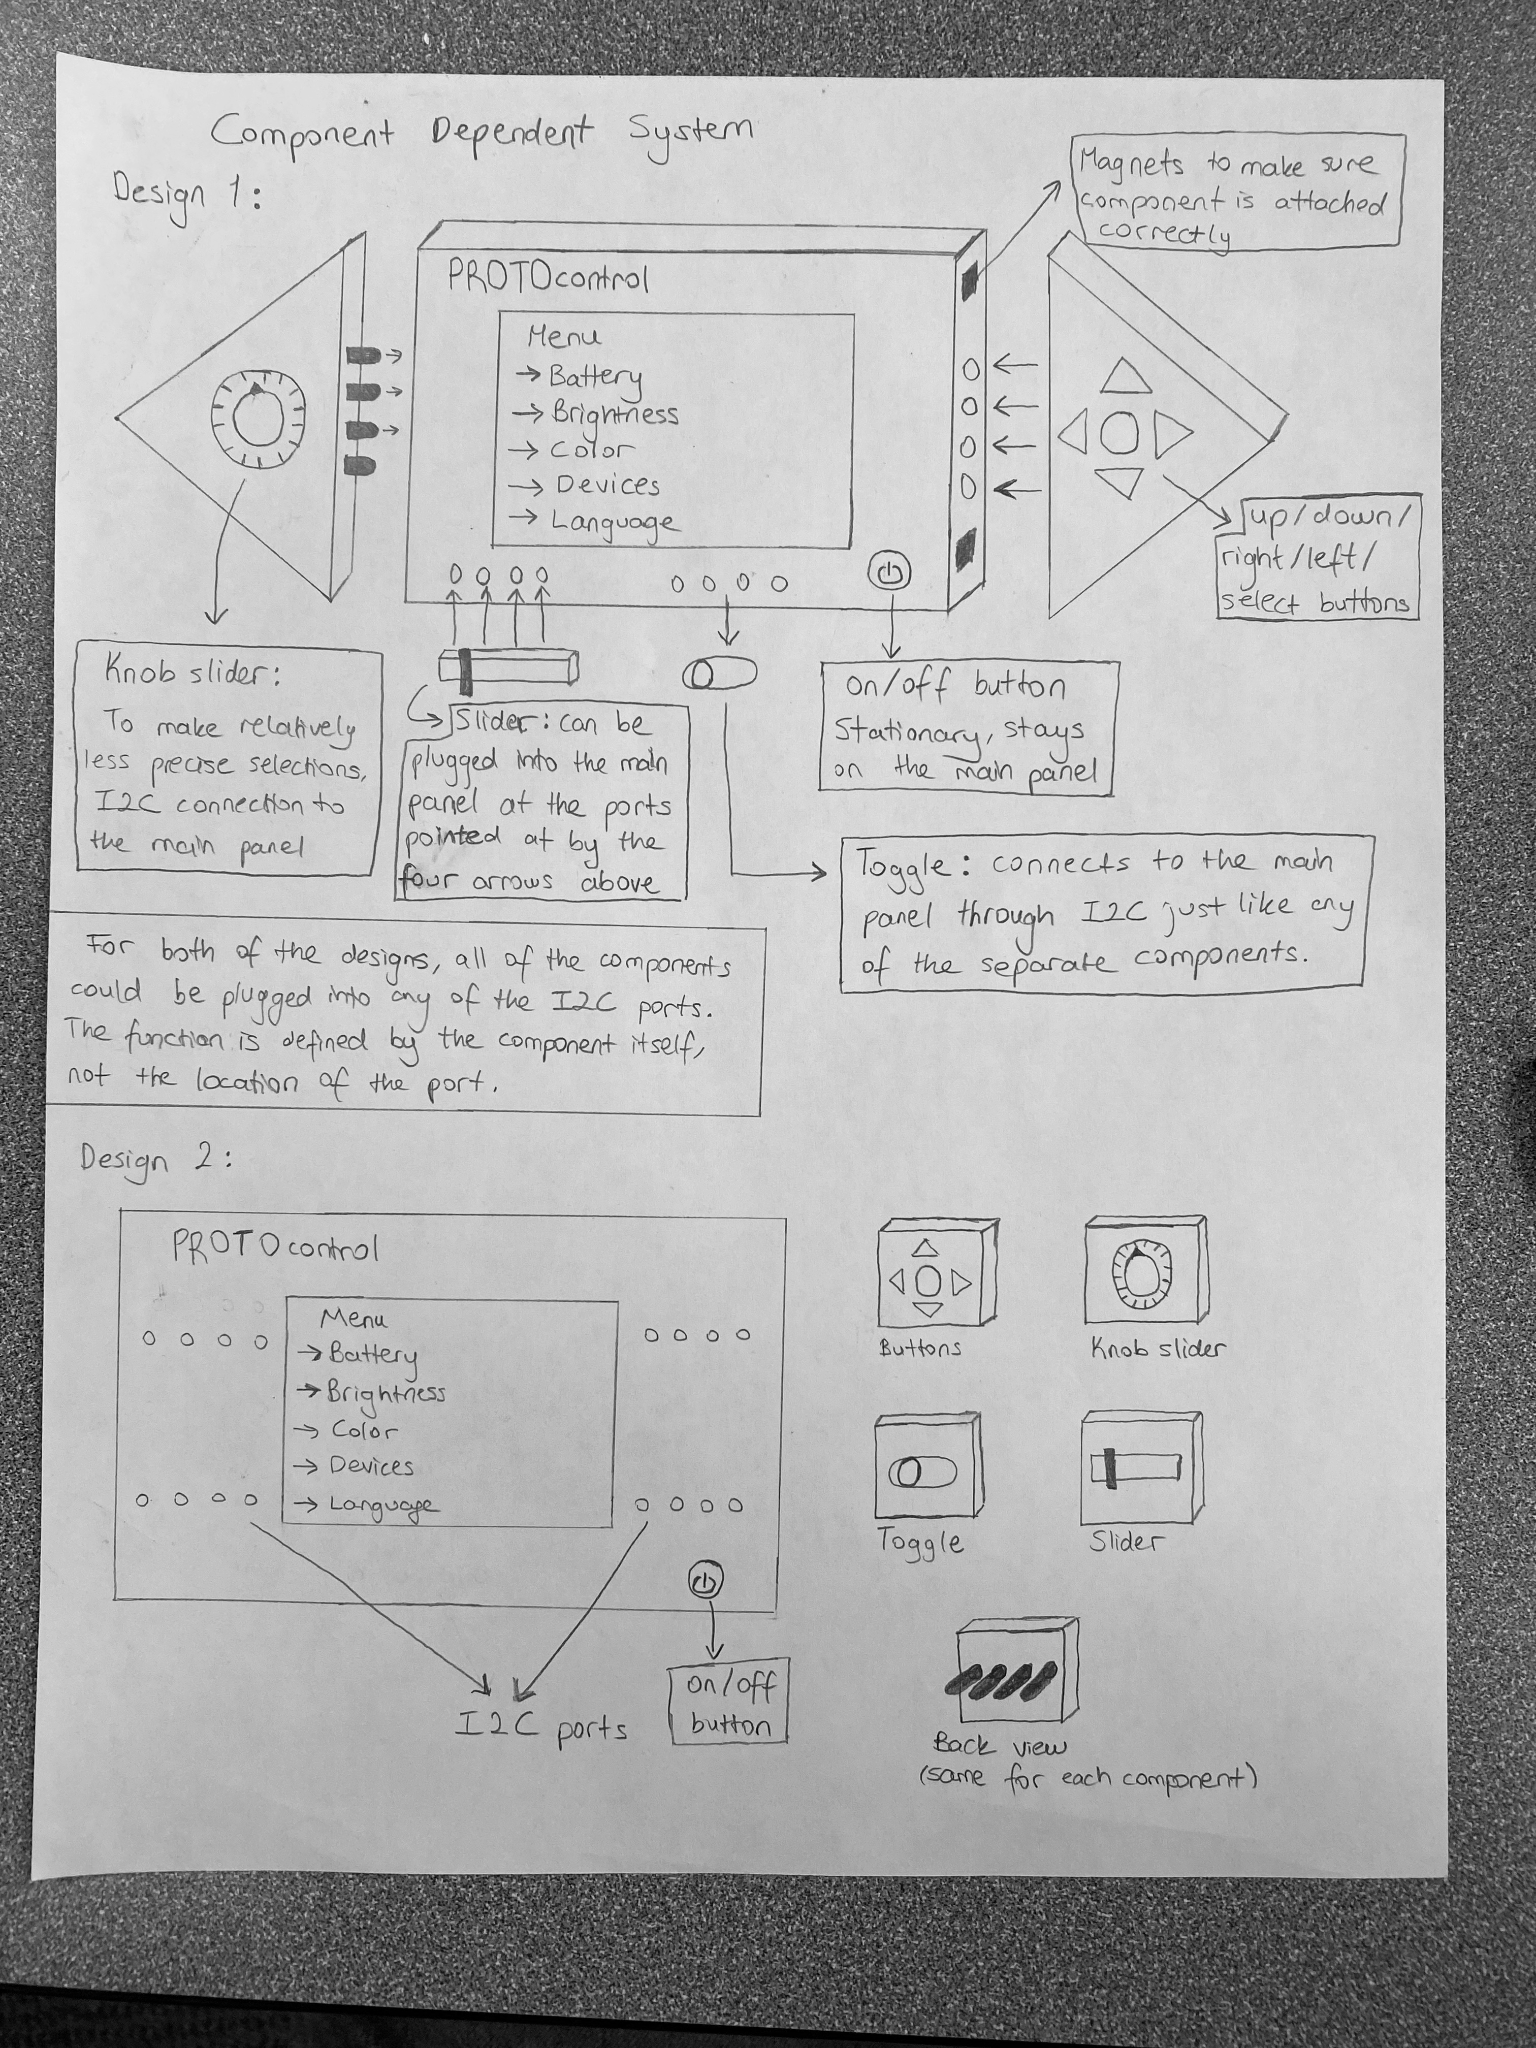 Component Dependent System
Design 1:
Magnets to make sure
component is attached
correctly
PROTOcontrol
Menu
→ Battery
→ Brightness
→ Color
→ Devices
→ Language
up/down/
right/left/
select buttons
Knob slider:
To make relatively
less precise selections,
I2C connection to
the main panel
Slider: can be
plugged into the main
panel at the ports
pointed at by the
four arrows above
on/off button
Stationary, stays
on the main panel
Toggle: connects to the main
panel through I2C just like any
of the separate components.
For both of the designs, all of the components
could be plugged into any of the I2C ports.
The function is defined by the component itself,
not the location of the port.
Design 2:
PROTOcontrol
Menu
→ Battery
→ Brightness
→ Color
→ Devices
→ Language
I2C ports
on/off
button
Buttons
Knob slider
Toggle
Slider
Back view
(same for each component)